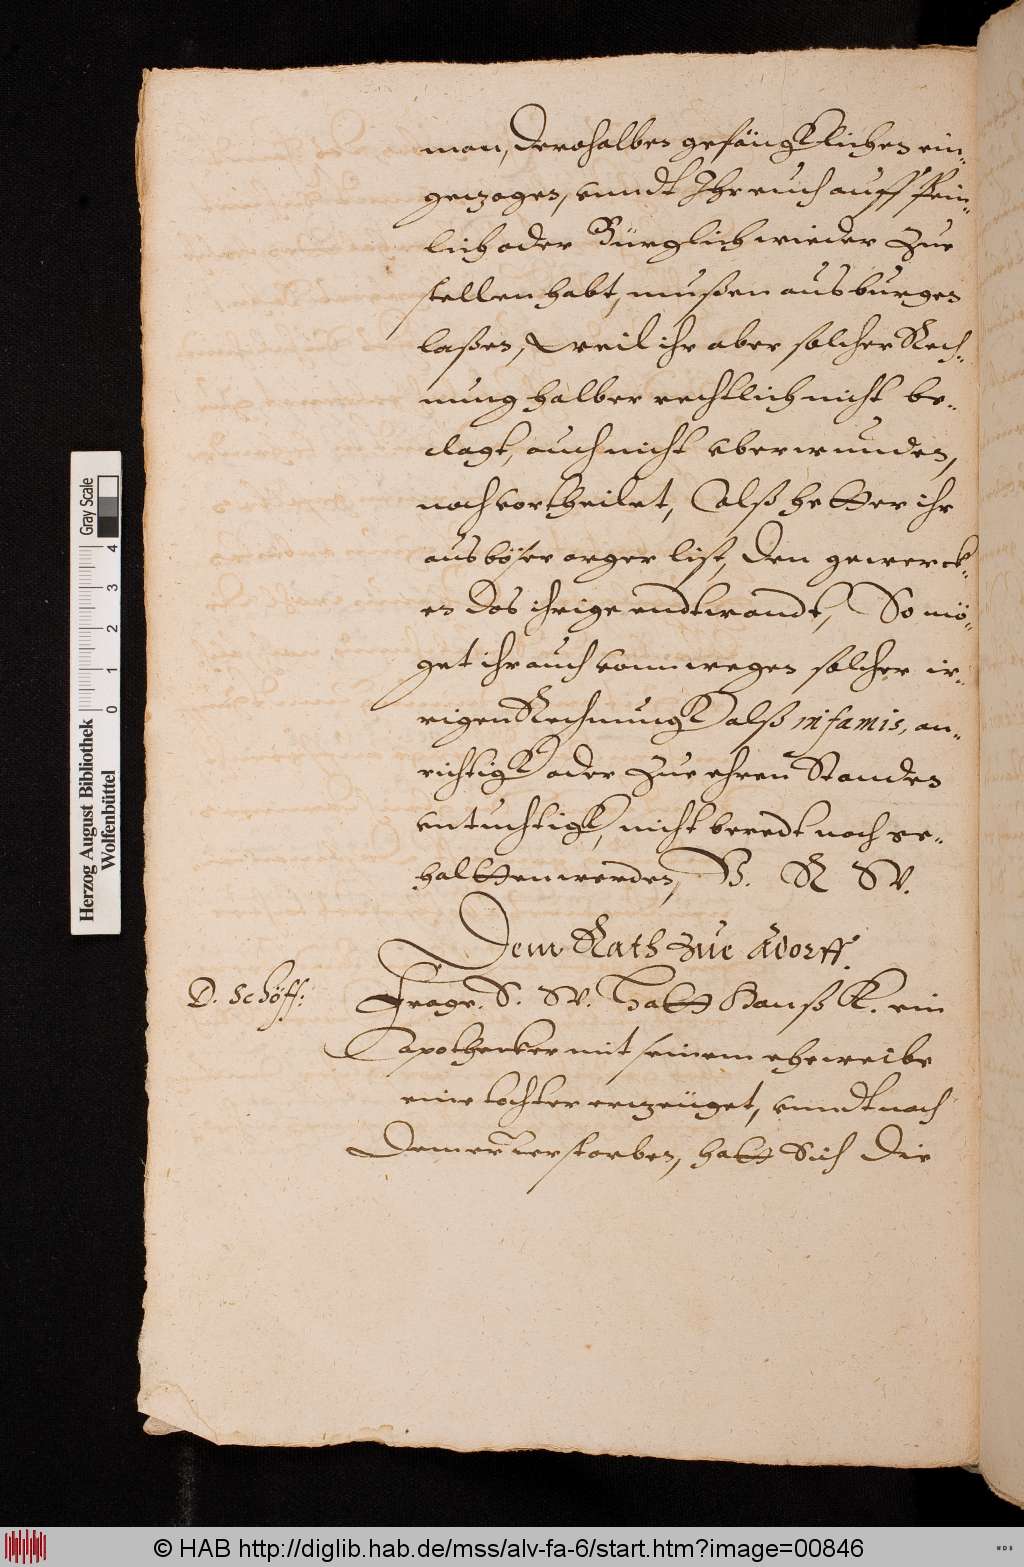 man, derohalben gefängklichen ein-
gezogen, vnndt Ihr euch auff Pein-
lich oder Bürglich wieder zue
stellen habt, mußen ausburgen
laßen, weil ihr aber solcher Rech-
nung halber rechtlich nicht be-
clagt, auch nicht vberwunden,
noch vortheilet, alß hetter ihr
aus böser arger list, den gewerck-
en das ihrige endtwandt, So mö-
get ihr auch vonn wegen solcher ir-
rigen Rechnung alß infamis, an-
richtigk oder zue ehren Standen
vntuchtigk, nicht beredt noch ge-
haltten werden, V. R W.
Dem Rath zue Adorff.
D. Schöff:
Frage. S. W. Hatt Hanß K. ein
apothecker mit seinem eheweibe
eine tochter erzeüget, vnndt nach
dem er verstorben, hatt sich die
Herzog August Bibliothek
Wolfenbüttel
0 1 2 3 4
Gray Scale
© HAB http://diglib.hab.de/mss/alv-fa-6/start.htm?image=00846
WDB